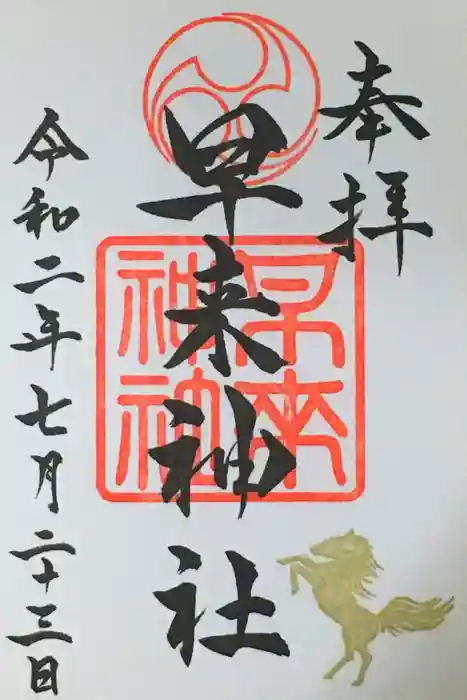 奉拝
早来神社
早来神社
令和二年七月二十三日